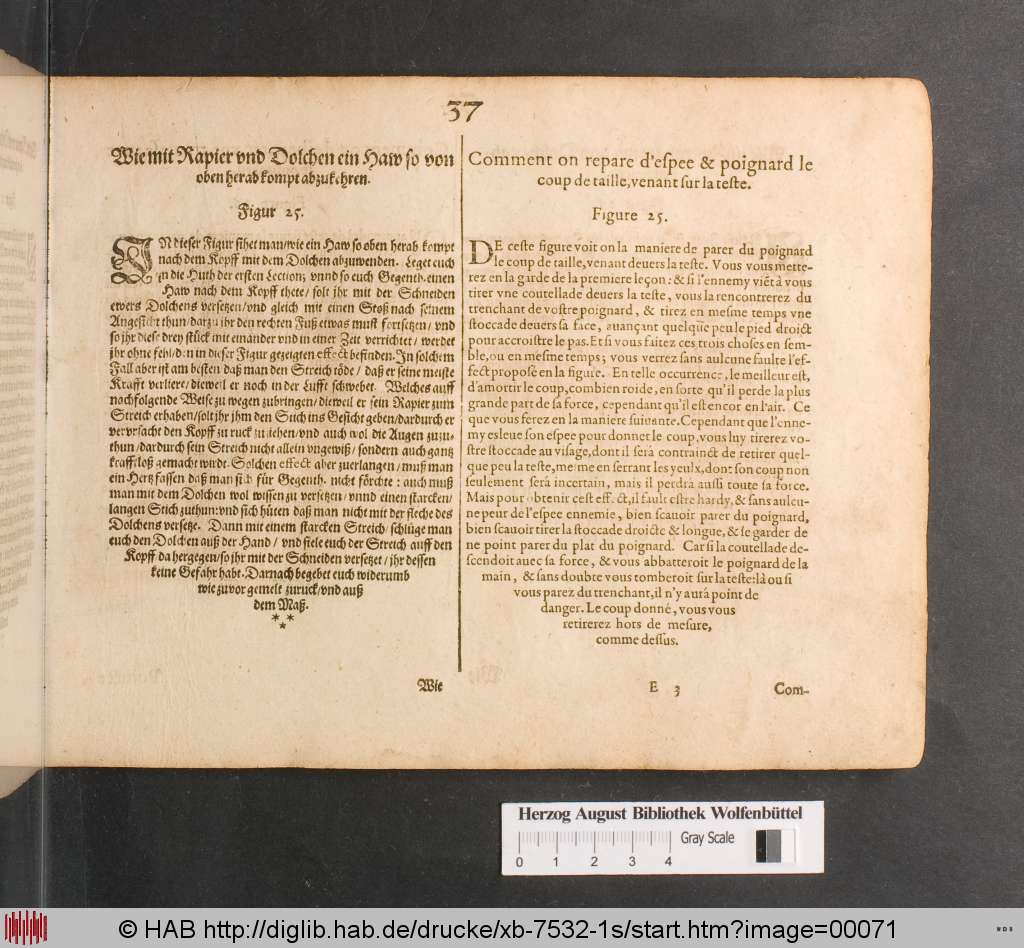 37
Wie mit Rapier vnd Dolchen ein Haw so von
oben herab kompt abzukehren.
Figur 25.
IN dieser Figur sihet man/wie ein Haw so oben herab kompt
nach dem Kopff mit dem Dolchen abzuwenden. Leget euch
in die Huth der ersten Lection; vnnd so euch Gegenth. einen
Haw nach dem Kopff thete/ solt jhr mit der Schneiden
ewers Dolchens versetzen/vnd gleich mit einen Stoß nach seinem
Angesicht thun/darzu jhr den rechten Fuß etwas must fortsetzen/ vnd
so jhr diese drey stück mit einander vnd in einer Zeit verrichtet/ werdet
jhr ohne fehl/den in dieser Figur gezeigten effect befinden. In solchem
Fall aber ist am besten daß man den Streich töde/ daß er seine meiste
Krafft verliere/dieweil er noch in der Lufft schwebet. Welches auff
nachfolgende Weise zu wegen zubringen/dieweil er sein Rapier zum
Streich erhaben/solt jhr jhm den Stich ins Gesicht geben/dardurch er
vervrsacht den Kopff zu ruck zu ziehen/vnd auch wol die Augen zuzu-
thun/dardurch sein Streich nicht allein vngewiß/ sondern auch gantz
krafftloß gemacht wirdt. Solchen effect aber zuerlangen/ muß man
ein Hertz fassen daß man sich für Gegenth. nicht förchte: auch muß
man mit dem Dolchen wol wissen zu versetzen/vnnd einen starcken/
langen Stich zuthun: vnd sich hüten daß man nicht mit der fleche des
Dolchens versetze. Dann mit einem starcken Streich/ schlüge man
euch den Dolchen auß der Hand/ vnd fiele euch der Streich auff den
Kopff da hergegen/so jhr mit der Schneiden versetzet/jhr dessen
keine Gefahr habt. Darnach begebet euch widerumb
wie zuvor gemelt zuruck/vnd auß
dem Maß.
***
Wie
Comment on repare d'espee & poignard le
coup de taille, venant sur la teste.
Figure 25.
DE ceste figure voit on la maniere de parer du poignard
le coup de taille, venant deuers la teste. Vous vous mette-
rez en la garde de la premiere leçon: & si l'ennemy viẽt à vous
tirer vne coutellade deuers la teste, vous la rencontrerez du
trenchant de vostre poignard, & tirez en mesme temps vne
stoccade deuers sa face, auançant quelque peu le pied droict
pour accroistre le pas. Et si vous faitez ces trois choses en sem-
ble, ou en mesme temps; vous verrez sans aulcune faulte l'ef-
fect proposé en la figure. En telle occurrence, le meilleur est,
d'amortir le coup, combien roide, en sorte qu'il perde la plus
grande part de sa force, cependant qu'il est encor en l'air. Ce
que vous ferez en la maniere suiuante. Cependant que l'enne-
my esleue son espee pour donner le coup, vous luy tirerez vo-
stre stoccade au visage, dont il serà contrainct de retirer quel-
que peu la teste, mesme en serrant les yeulx, dont son coup non
seulement serà incertain, mais il perdrà aussi toute sa force.
Mais pour obtenir cest effect, il fault estre hardy, & sans aulcu-
ne peur de l'espee ennemie, bien scauoir parer du poignard,
bien scauoir tirer la stoccade droicte & longue, & se garder de
ne point parer du plat du poignard. Car si la coutellade de-
scendoit auec sa force, & vous abbatteroit le poignard de la
main, & sans doubte vous tomberoit sur la teste: là ou si
vous parez du trenchant, il n'y aurà point de
danger. Le coup donné, vous vous
retirerez hors de mesure,
comme dessus.
E 3
Com-
Herzog August Bibliothek Wolfenbüttel
0 1 2 3 4 Gray Scale
© HAB http://diglib.hab.de/drucke/xb-7532-1s/start.htm?image=00071